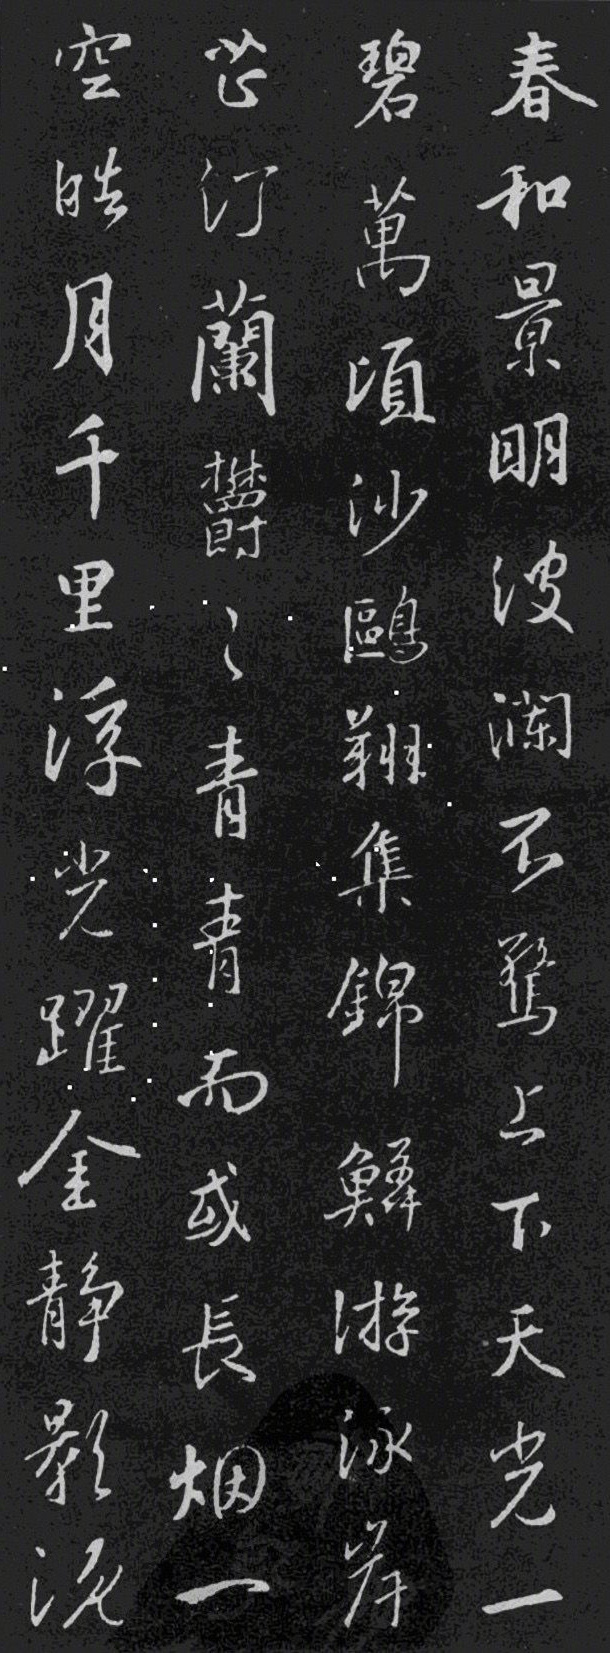 春和景明波瀾不驚上下天光一
碧萬頃沙鷗翔集錦鱗游泳岸
芷汀蘭欝〻青青而或長烟一
空皓月千里浮光躍金靜影沉